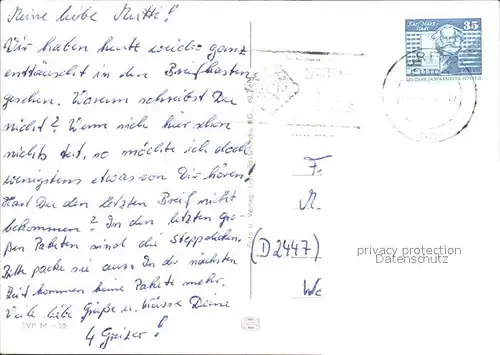 Meine liebe Mutti!
Wir haben heute wieder ganz
enttäuscht in den Briefkasten
gesehen. Warum schreibst Du
nicht? Wenn sich hier schon
nichts tut, so möchte ich doch
wenigstens etwas von Dir hören!
Hast Du den letzten Brief nicht
bekommen? In den letzten gro-
ßen Paketen sind die Steppdecken.
Bitte packe sie aus. In der nächsten
Zeit kommen keine Pakete mehr.
Viele liebe Grüße u. Küsse Deine
4 Greizer!
SVP M
35
F
M.
(D 2447)
We
privacy protection
Datenschutz